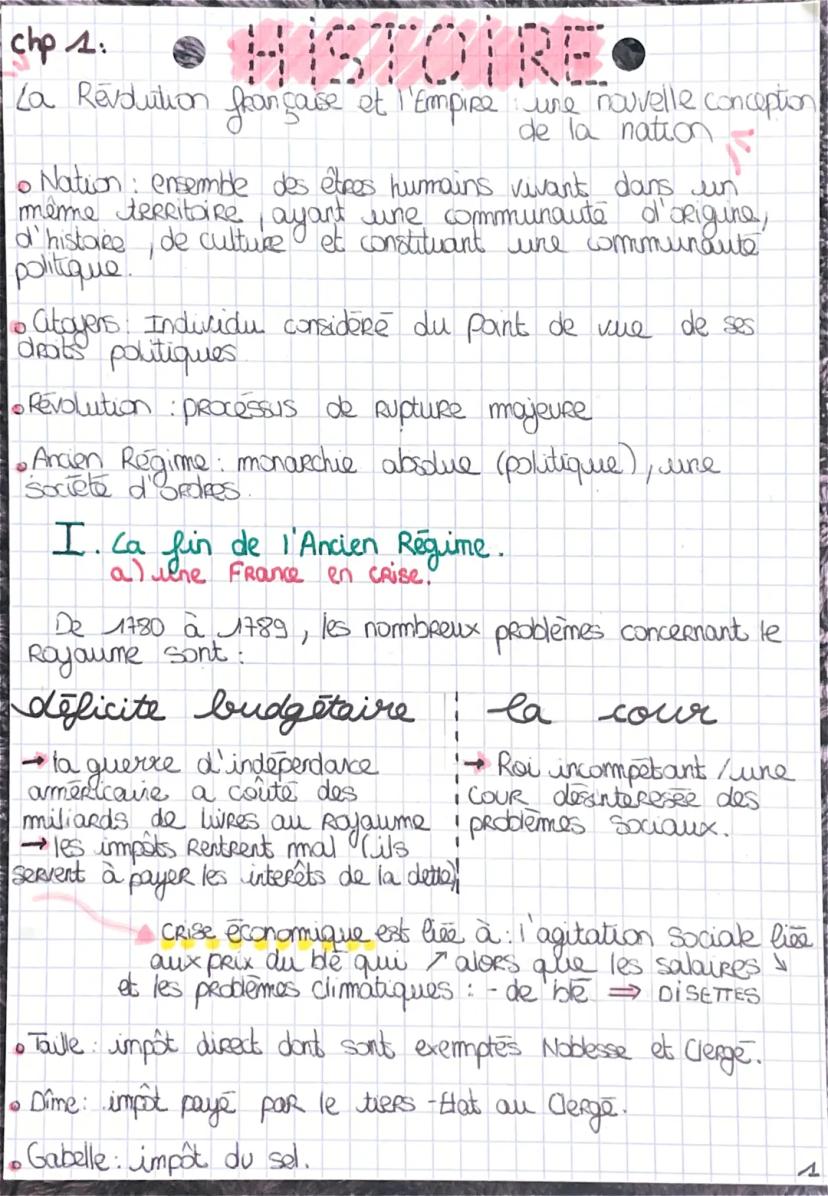 chp 1:
HiSTOiRE
La Révolution française et l'Emmpire : une nouvelle conception
de la nation
Nation : ensemble des êtres humains vivant dans un
même territoire, ayant une communauté d'origine,
d'histoire, de culture et constituant une communauté
politique.
Citoyens : Individu considéré du point de vue de ses
droits politiques
Révolution : processus de rupture majeure
Ancien Régime : monarchie absolue (politique), une
société d'ordres.
I. La fin de l'Ancien Régime.
a) une France en crise.
De 1780 à 1789, les normbreux problèmes concernant le
Royaume sont :
déficite budgétaire
→ la guerre d'indépendance
américaine a coûté des
miliards de livres au Royaume
→ les impôts rentrent mal (ils
servent à payer les interêts de la dette)
la cour
→ Roi incompétant / une
cour désinteresée des
problèmes sociaux.
crise économique est liée à : l'agitation sociale liée
aux prix du blé qui ↗ alors que les salaires ↘
et les problèmes climatiques : - de blé ⇒ DISETTES
Taille : impôt direct dont sont exemptés Noblesse et Clergé.
Dîme : impôt payé par le tiers-Etat au Clergé.
Gabelle : impôt du sel.
1